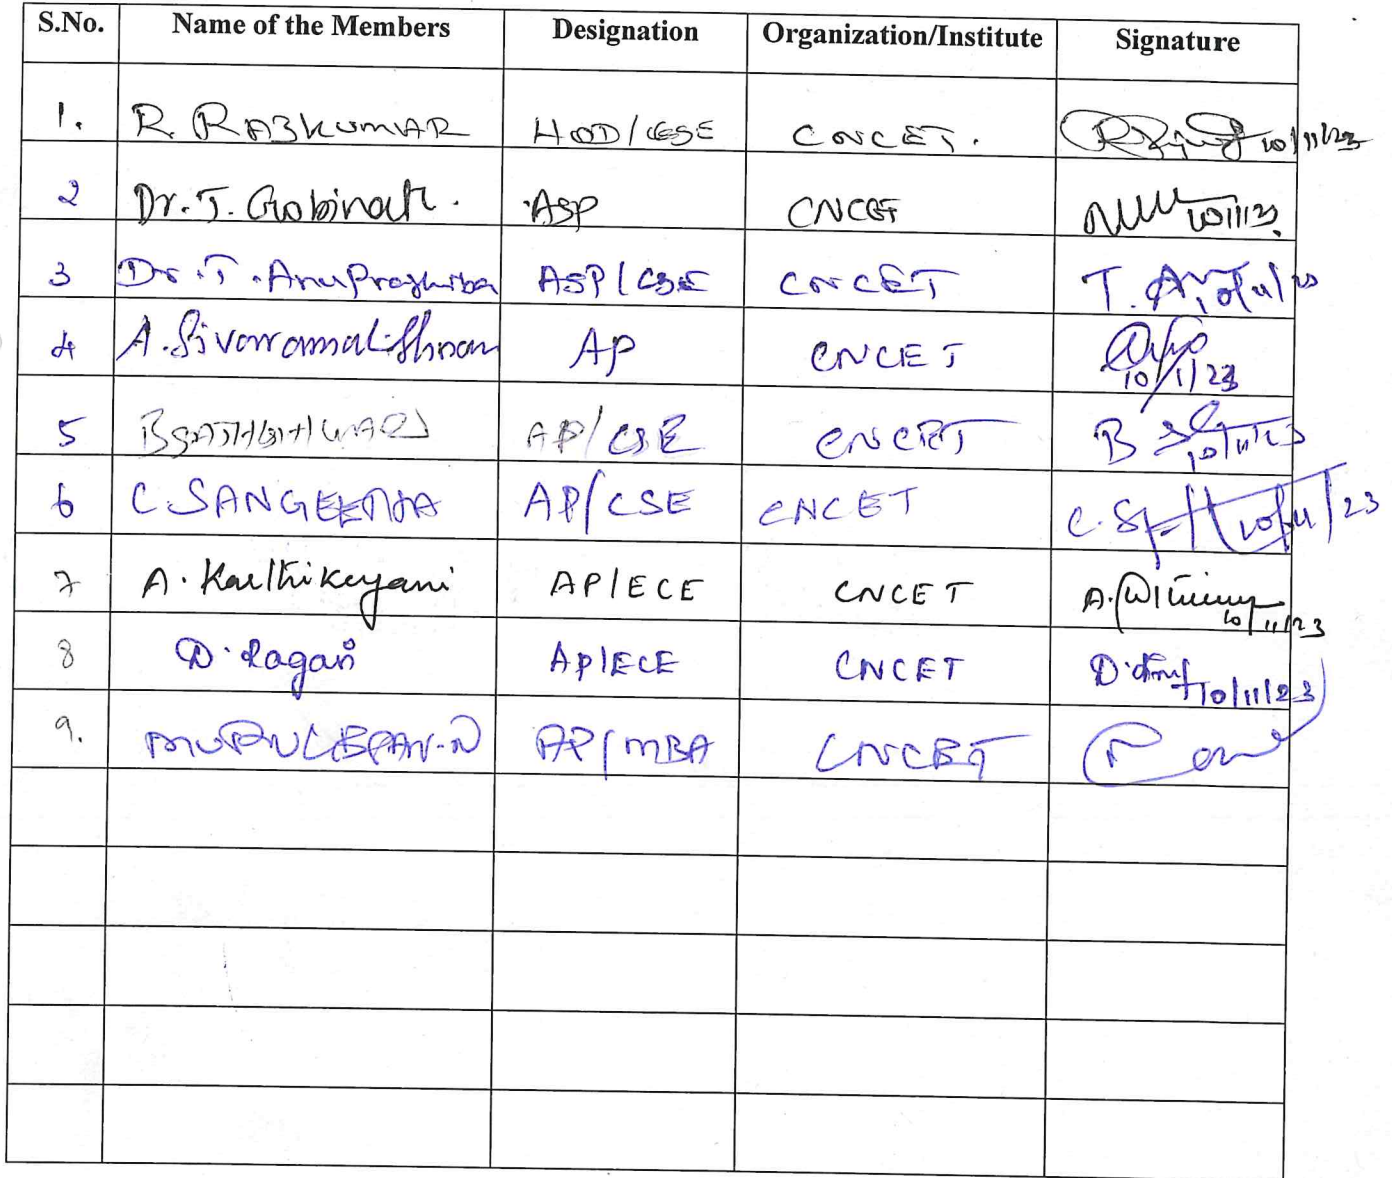 S.No. Name of the Members Designation Organization/Institute Signature
1. R. RAJKUMAR HOD/CSE CNCET. 10/11/23
2 Dr. T. Gobinath. ASP CNCET 10/11/23.
3 Dr. T. Anuprathiba ASP/CSE CNCET T. 10/11/23
4 A. Sivaramakrishnan AP CNCET 10/11/23
5 AP/CSE CNCET B 10/11/23
6 C SANGEETHA AP/CSE CNCET C. 10/11/23
7 A. Karthikeyani AP/ECE CNCET A. 10/11/23
8 D. Ragan AP/ECE CNCET D. 10/11/23
9. MURUGESAN.N AP/MBA CNCET